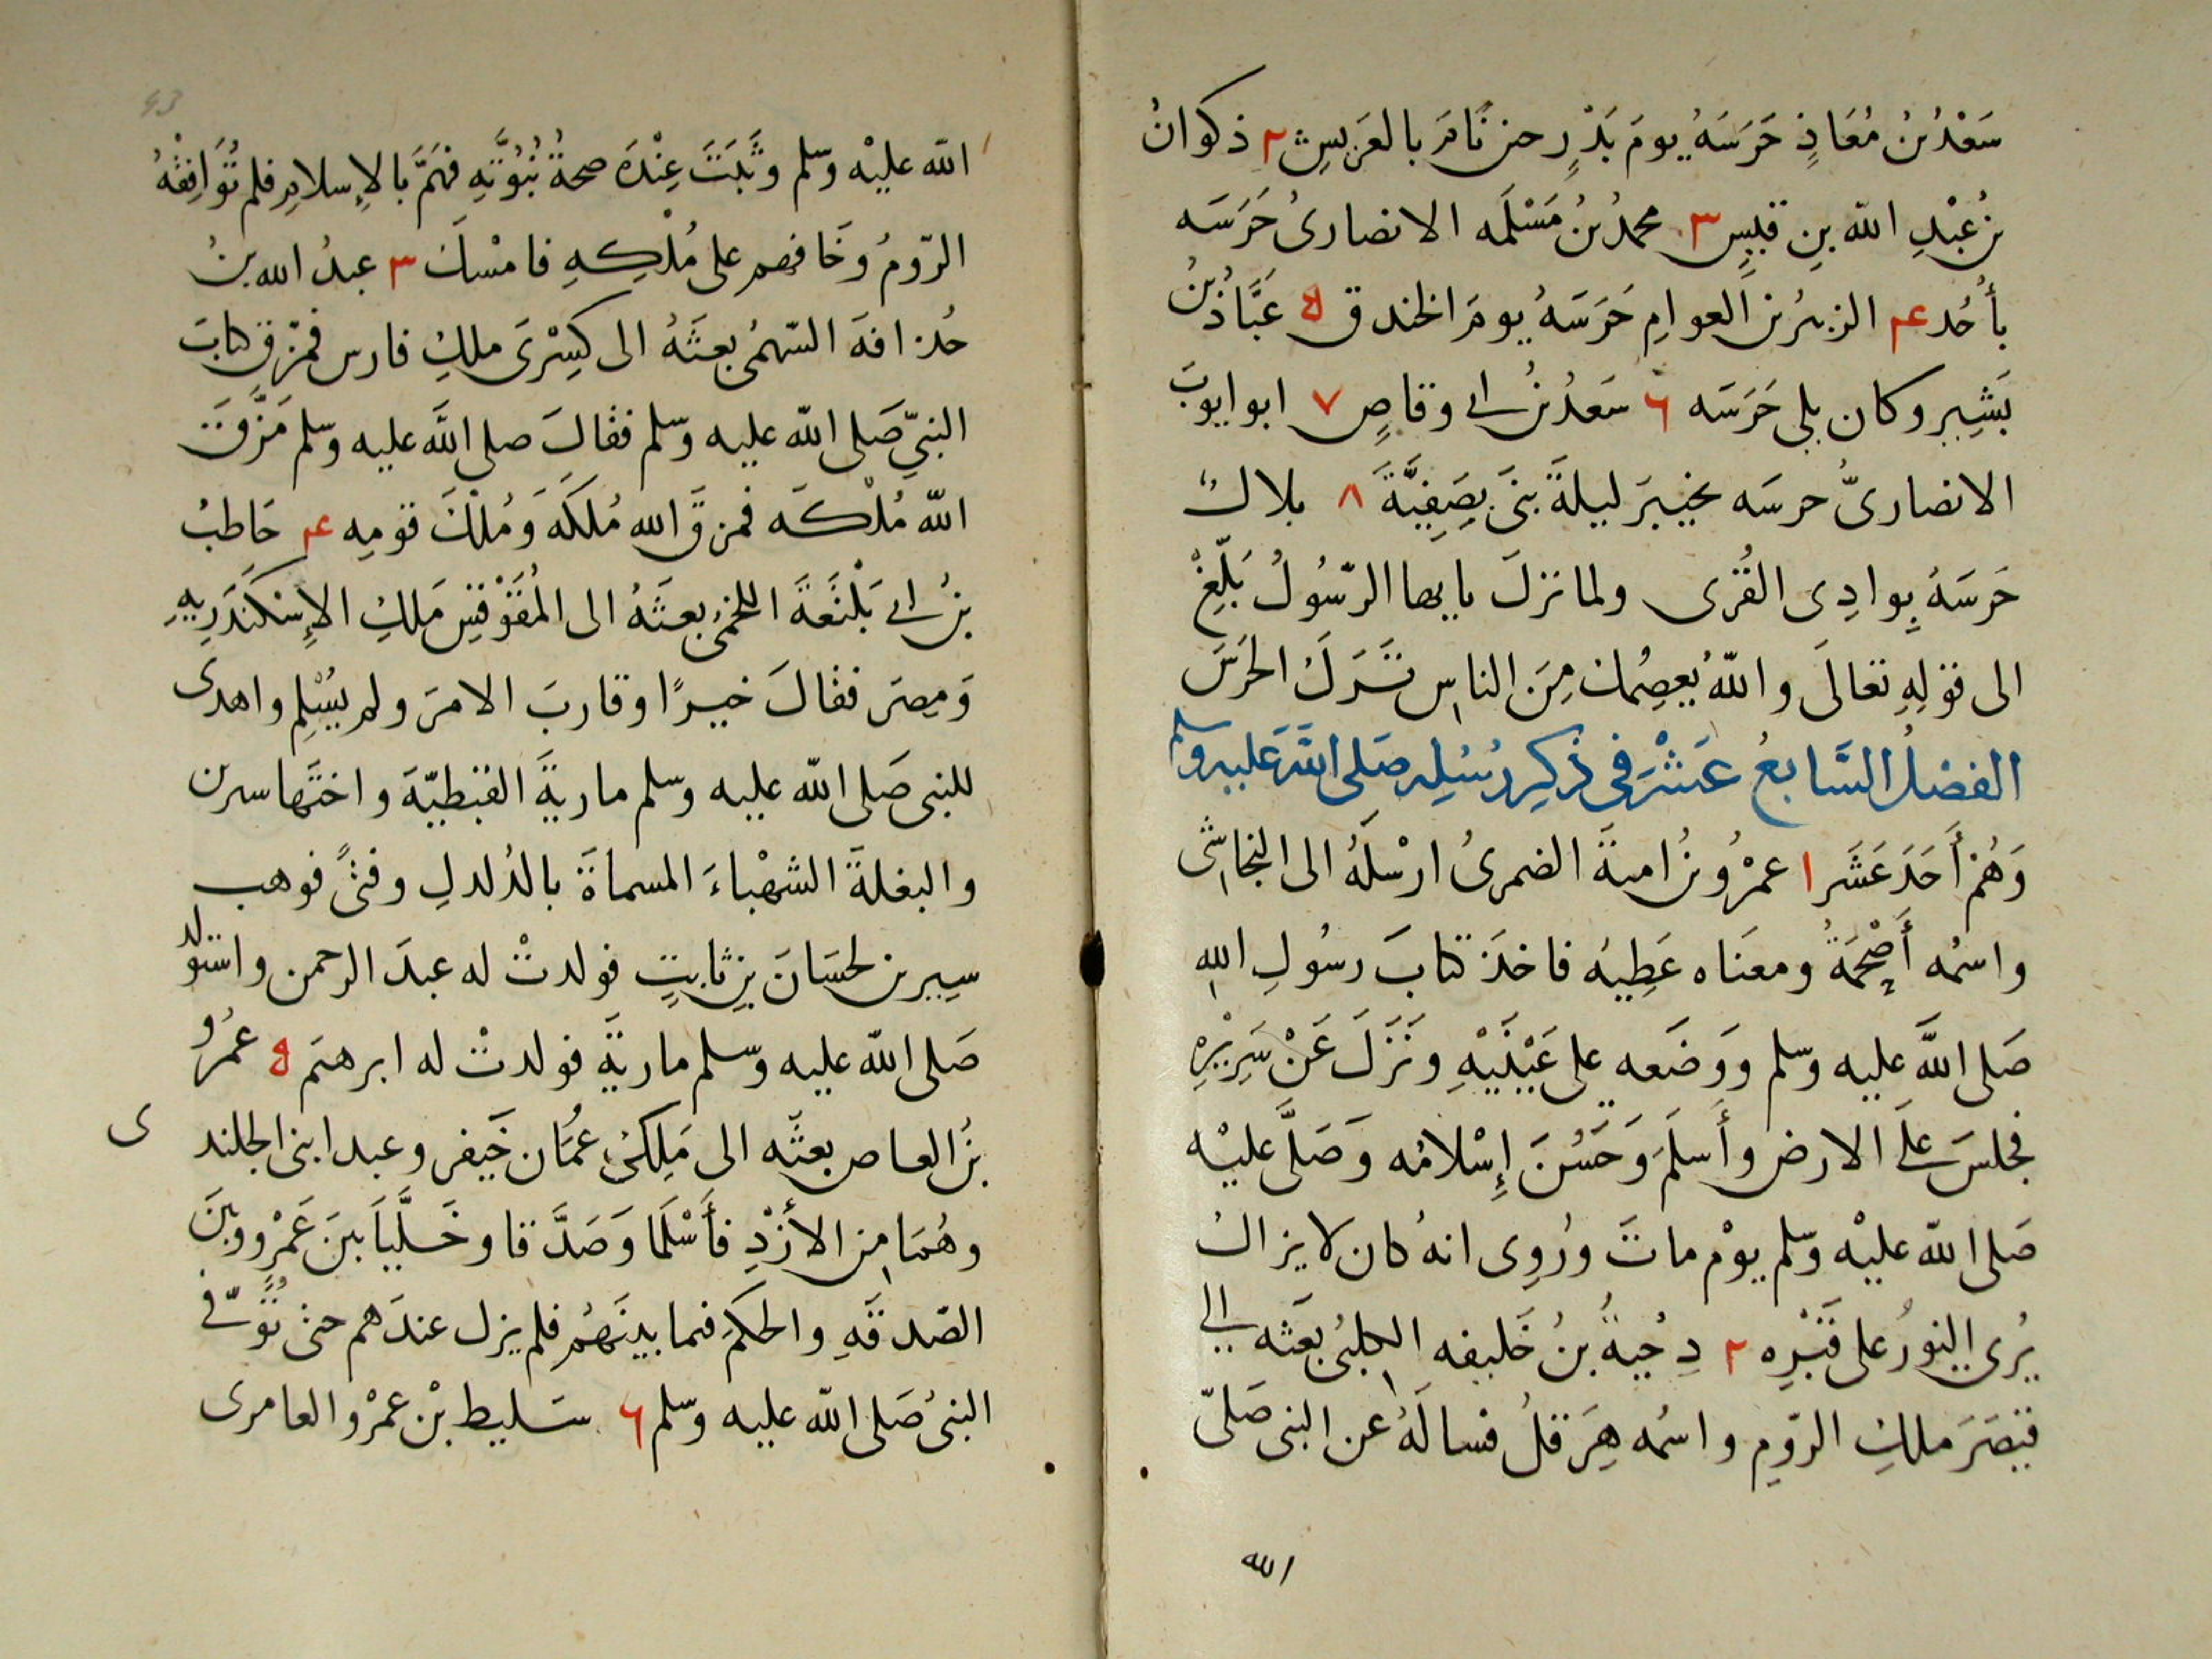 سَعْدُ بنُ مُعَاذٍ حَرَسَهُ يومَ بَدْرٍ حين نَامَ بالعَرِيشِ ٢ ذكوانُ
بنُ عَبْدِ الله بنِ قيسٍ ٣ محمدُ بنُ مَسْلَمَه الانصارىُ حَرَسَه
بأُحُد ٤ الزبيرُ بن العوامِ حَرَسَهُ يومَ الخندق ٥ عَبَّادُ بنُ
بَشِير وكان يلى حَرَسَه ٦ سَعدُ بنُ ابى وقاصٍ ٧ ابو ايوبَ
الانصارىُّ حرسَه بخيبرَ ليلةَ بنىَ بِصَفِيَّةَ ٨ بلالٌ
حَرَسَهُ بِوادِى القُرى ولما نزلَ يا يها الرّسُولُ بَلِّغْ
الى قوْلِهِ تعَالَى واللّهُ يَعصِمُك مِنَ الناسِ تَرَكَ الحَرَسَ
الفصلُ السَّابعُ عَشْرَ فى ذِكِر رُسُلِه صَلى اللَّهَ عَليه وسلم
وَهُمْ أَحَدَ عَشَر ١ عمْرُو بنُ امية الضمرىُ ارْسَلَهُ الى النجاشى
واسمُه أَصْحَمَةُ ومعنَاه عَطِيه فاخذَ كتابَ رسُولِ اللهِ
صَلى اللَّه عليه وسلم ووَضَعه على عَيْنَيْهِ ونَزَلَ عَنْ سَرِيْرِهِ
فجلسَ على الارض وأَسلَمَ وَحَسُنَ إِسْلامُه وَصَلَّى عليْه
صَلى اللّه عليْه وسّلم يوْم ماتَ ورُوِى انهُ كان لا يزالُ
يُرى النورُ على قَبْرِه ٢ دِحْيةُ بنُ خَليفه الكلبىُ بعَثه الى
قيْصَرَ ملكِ الرّومِ واسمُه هِرَقلُ فسالَهُ عن النبى صَلىّ
الله
اللّه عليْه وسّلم وثَبَتَ عِنْدَه صحةُ نُبُوَّتِهِ فهَمَّ بالإِسلامِ فلم تُوَافِقْهُ
الرّومُ وخَافهم على مُلْكِهِ فامْسَكَ ٣ عبدُ الله بنُ
حُذافهَ السّهمُى بعثَهُ الى كِسْرَى ملكِ فارس فمزّق كتابَ
النبىِّ صَلى اللّه عليه وسّلم فقالَ صلى اللَّه عليه وسلم مَزَّقَ
اللّه مُلْكَه فمزقَّ الله مُلكَهَ وَمُلْكَ قومِه ٤ حَاطِبُ
بنُ ابى بَلْتَعَةَ اللخمىُ بعثَهُ الى المُقَوْقِسِ مَلكِ الإِسْكَنَدَرِيهِ
وَمِصرَ فقالَ خيرًا وقاربَ الامرَ ولم يُسْلِم واهدى
للنبى صَلى اللّه عليه وسلم ماريةَ القبْطيّةَ واختَها سيرين
والبغلةَ الشهْباءَ المسماةَ بالدُلدلِ وفتىً فوهب
سِيرين لحسَانَ بنِ ثابتٍ فولدتْ له عبدَ الرحمن واستولد
صَلى اللّه عليه وسّلم ماريةَ فولدتْ له ابرهيَم ٥ عمُرو
بنُ العاص بعثَه الى مَلِكَىْ عُمَان جَيفر وعبد ابنى الجلند
ى
وهُمَا من الأزْدِ فأَسْلَمَا وَصَدَّقا وخَلَّيَا بينَ عَمْرٍو وبينَ
الصّدقَهِ والحكَمِ فيما بينَهُم فلم يزل عندَهم حتى تُوُفّى
النبىُ صَلى اللّه عليه وسّلم ٦ سَليط بْن عمْرو العامرى